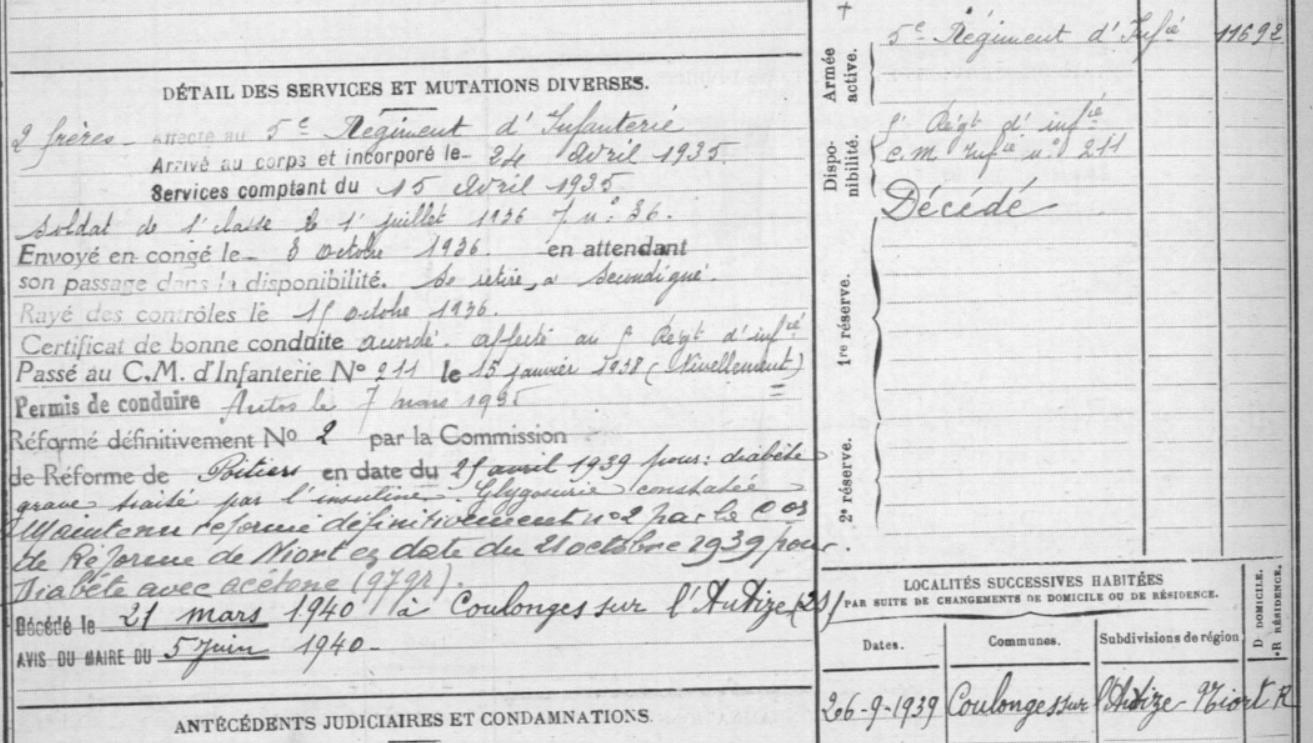 DÉTAIL DES SERVICES ET MUTATIONS DIVERSES.
2 frères - Affecté au 5e Régiment d'Infanterie
Arrivé au corps et incorporé le 24 Avril 1935.
Services comptant du 15 Avril 1935
Soldat de 1e classe le 1e juillet 1936 n° 86.
Envoyé en congé le 8 octobre 1936. en attendant
son passage dans la disponibilité. Se retire à Secondigné.
Rayé des contrôles le 15 octobre 1936.
Certificat de bonne conduite accordé. affecté au 5e Régt d'infie
Passé au C.M. d'Infanterie No 211 le 15 janvier 1938 (Nivellement)
Permis de conduire Autos le 7 mars 1935
Réformé définitivement No 2 par la Commission
de Réforme de Poitiers en date du 25 avril 1939 pour: diabète
grave traité par l'insuline. Glygosurie constatée
Maintenu reformé définitivement n°2 par la Con
de Réforme de Niort en date du 21 octobre 1939 pour
Diabéte avec acétone (97gr).
Décédé le 21 mars 1940 à Coulonges sur l'Autize (2S)
AVIS DU MAIRE DU 5 Juin 1940 -
ANTÉCÉDENTS JUDICIAIRES ET CONDAMNATIONS.
Armée active.
5e Régiment d'Infie 11692
Disponibilité.
5e Régt d'infie
C.M. Infie n° 211
Décédé
1re réserve.
2e réserve.
LOCALITÉS SUCCESSIVES HABITÉES
PAR SUITE DE CHANGEMENTS DE DOMICILE OU DE RÉSIDENCE.
Dates. Communes. Subdivisions de région
D DOMICILE.
R RÉSIDENCE.
26-9-1939 Coulonges sur l'Autize - Niort R